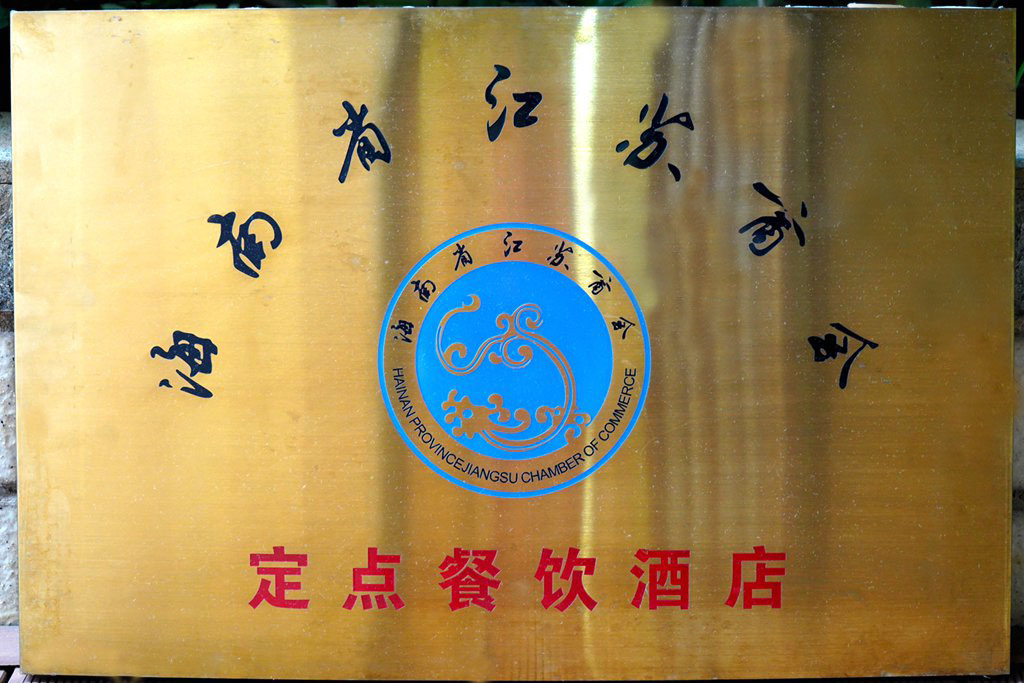 海南省江苏商会
海南省江苏商会
HAINAN PROVINCEJIANGSU CHAMBER OF COMMERCE
定点餐饮酒店